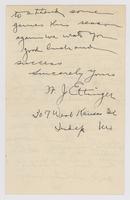 to attend some
games this season
again we wish you
good luck and
success
Sincerely yours
W. J. Ettinger
207 West Kansas St
Indep Mo